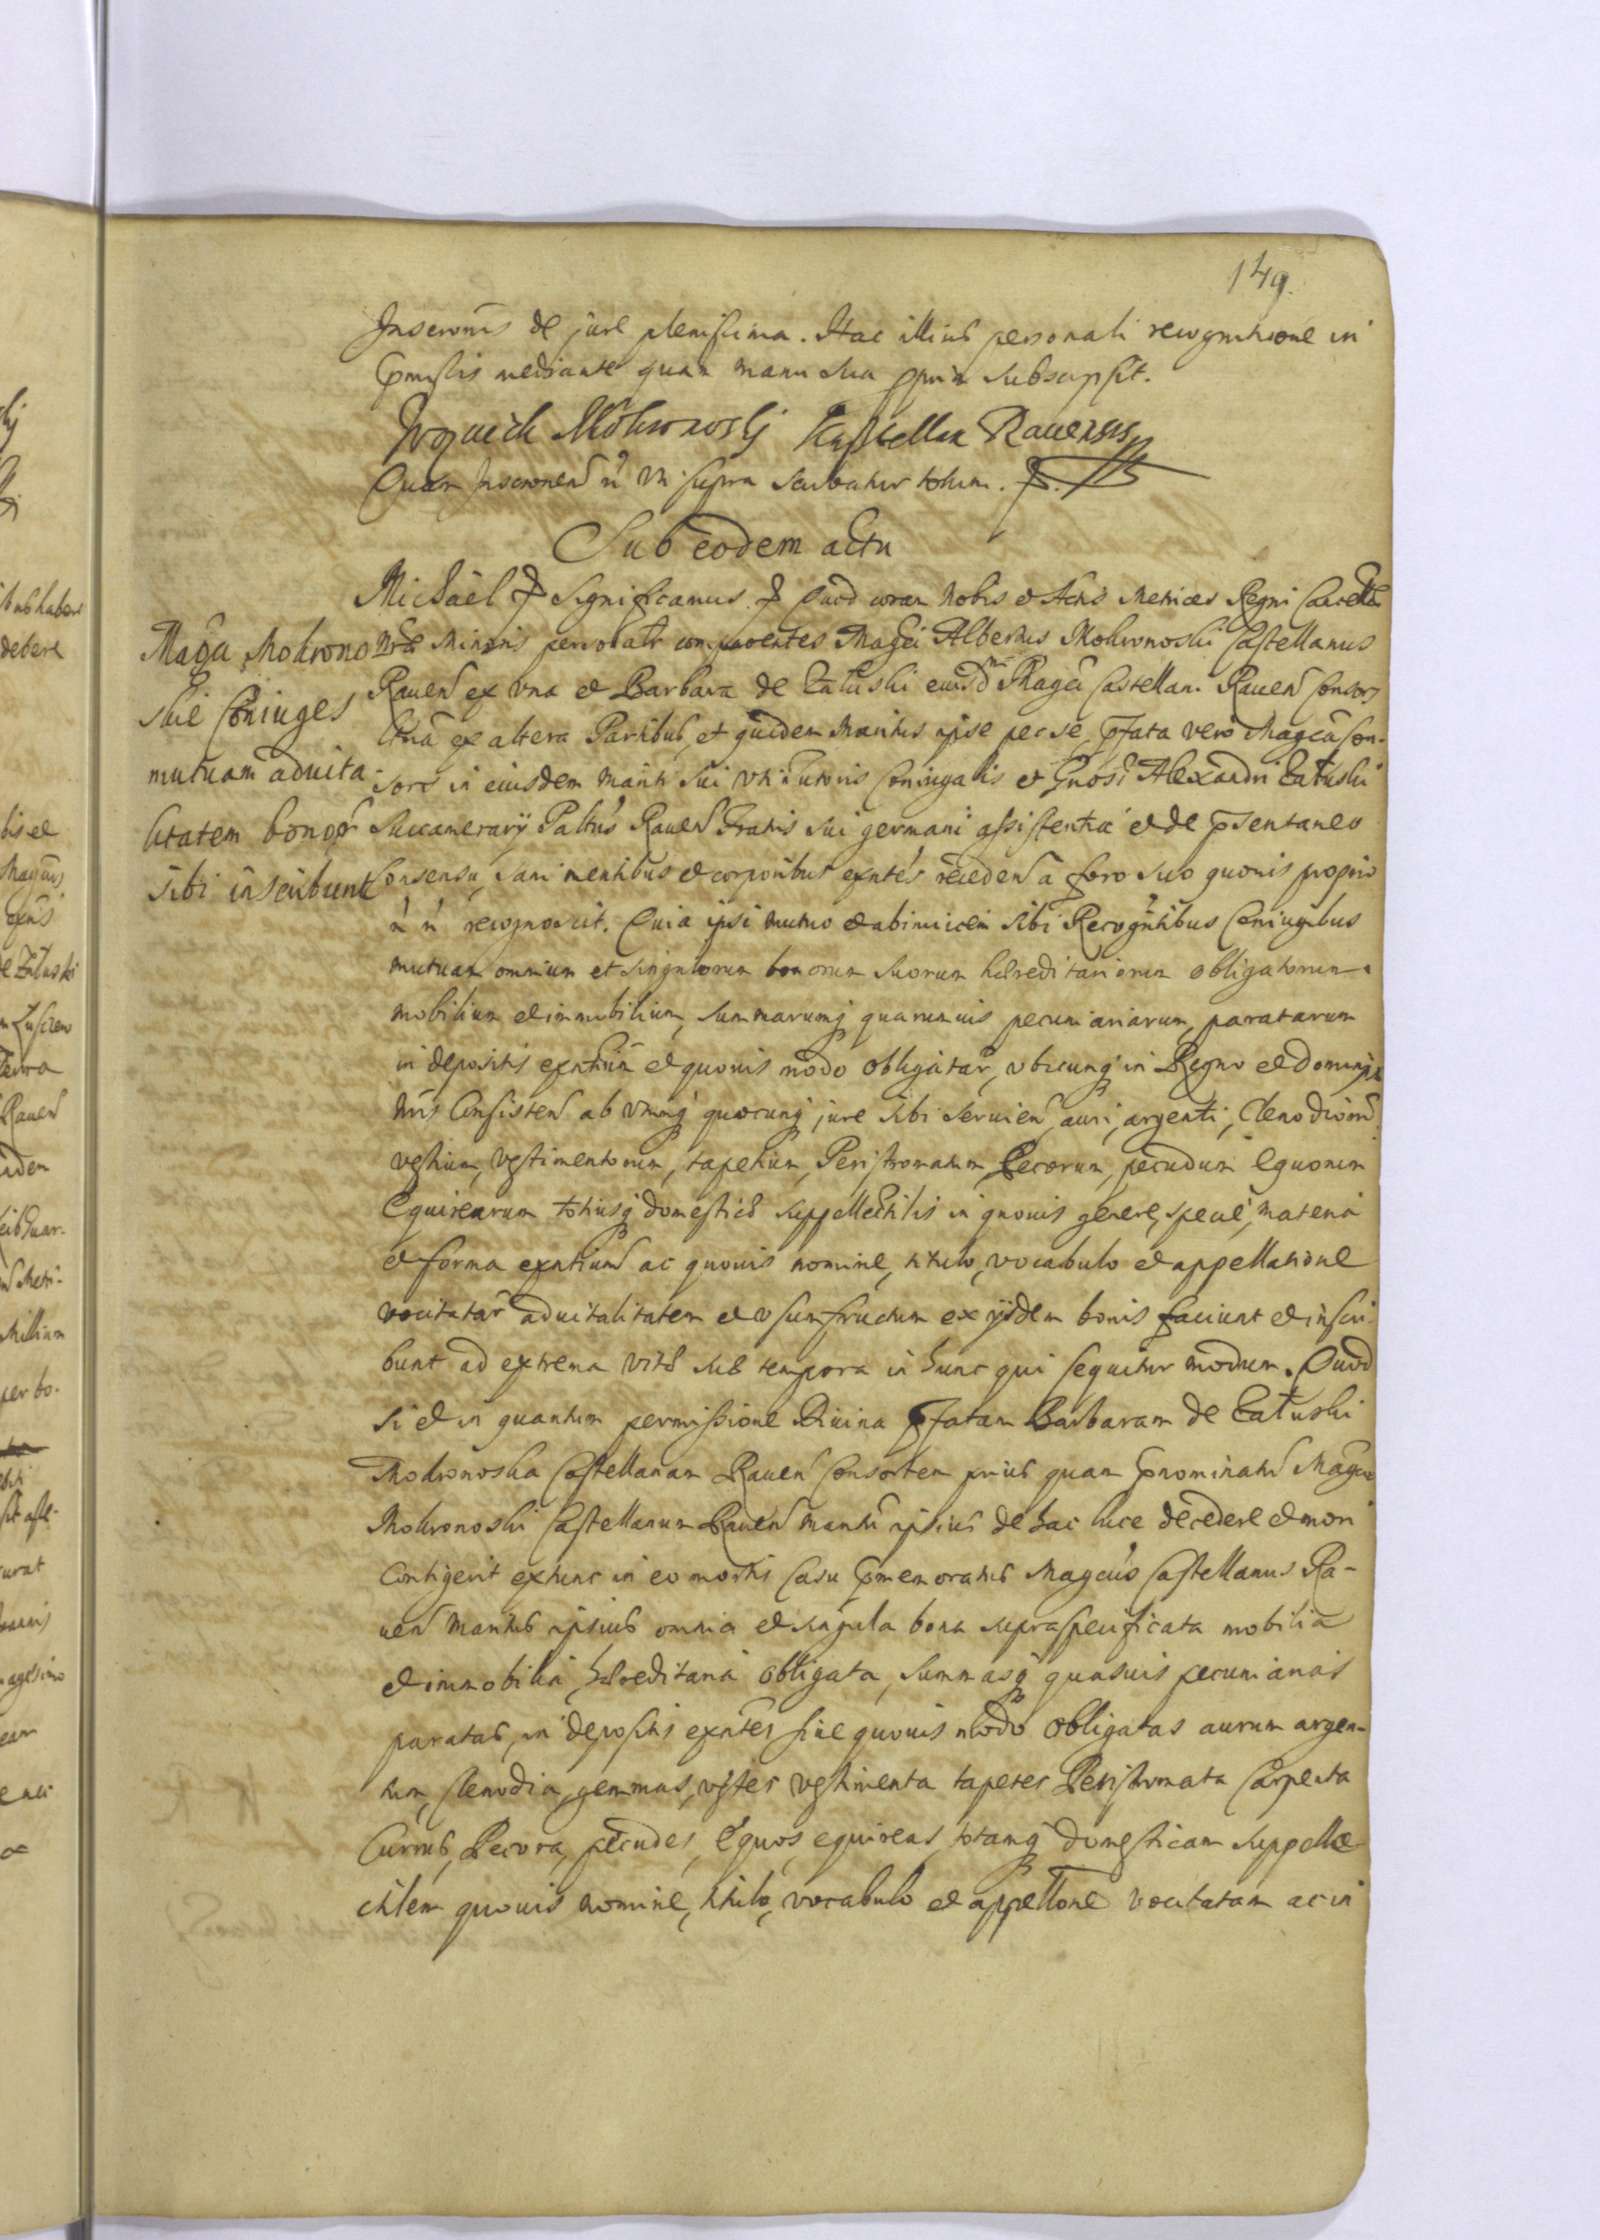 149.
Inscronis de jure plenissima. Hac illius personali recognitione in
pmissis mediante quam manu sua ppria subscripsit.
Woyciech Mokronoskj Kasztellan Rauensis
Quam Inscronem ut supra scribatur totum.
Sub eodem actu
Michael significamus quod coram Nobis et Actis Metrices Regni Cancella
Nrae Minoris personalr comparentes Magci Albertus Mokronoski Castellanus
Rauen ex vna et Barbara de Załuski eiusd Magci Castellan. Rauen Consors
ltma ex altera Partibus, et quidem Maritus ipse per se, pfata vero Magca Con-
sors in eiusdem Mariti sui vti Tutoris Coniugalis et Gnosi Alexandri Załuski
Succamerarij Paltus Rauen Fratris sui germani assistentia et de psentaneo
Consensu, sani mentibus et corporibus exntes recedens a foro suo quovis proprio
recognovit. Quia ipsi mutuo et abinuicem sibi Recogntibus Coniugibus
mutuam omnium et singulorum bonorum suorum haereditariorum obligatorum
mobilium et immobilium, summarumq quarumuis pecuniariarum, paratarum
in depositis exntium et quouis modo obligatar, vbicunq in Regno et Dominijs
Nris Consisten ab vnoq quocunq jure sibi seruien, auri, argenti, Clenodiorum
vestium, vestimentorum, tapetium, Peristromatum, Pecorum, pecudum Equorum
Equirearum totiusq domesticae suppellectilis in quouis genere, specie, materia
et forma exntium ac quouis nomine, titulo, vocabulo et appellatione
vocitatar aduitalitatem et vsumfructum ex ijsdem bonis faciunt et inscri-
bunt ad extrema vitae suae tempora in hunc qui sequitur modum. Quod
si et in quantum permissione Diuina pfatam Barbaram de Załuski
Mokronoska Castellanam Rauen Consortem prius quam pnominatus Magcus
Mokronoski Castellanum Rauen Maritum ipsius de hac luce decedere et mori
contigerit extunc in eo mortis casu pmemoratus Magcus Castellanus Ra-
uen Maritus ipsius omnia et singula bona supraspecificata mobilia
et immobilia, haereditaria obligata, summasq quasuis pecuniarias
paratas, in depositis exntes siue quouis modo obligatas aurum argen-
tum, clenodia, gemmas, vestes vestimenta tapetes Peristromata Carpenta
Currus, Pecora, pecudes, Equos, equireas, totamq domesticam suppelle
ctilem quouis nomine, titulo, vocabulo et appellone vocitatam ac in
Magci Mokrono
skie Coniuges
mutuam aduita-
litatem bonor
sibi inscribunt